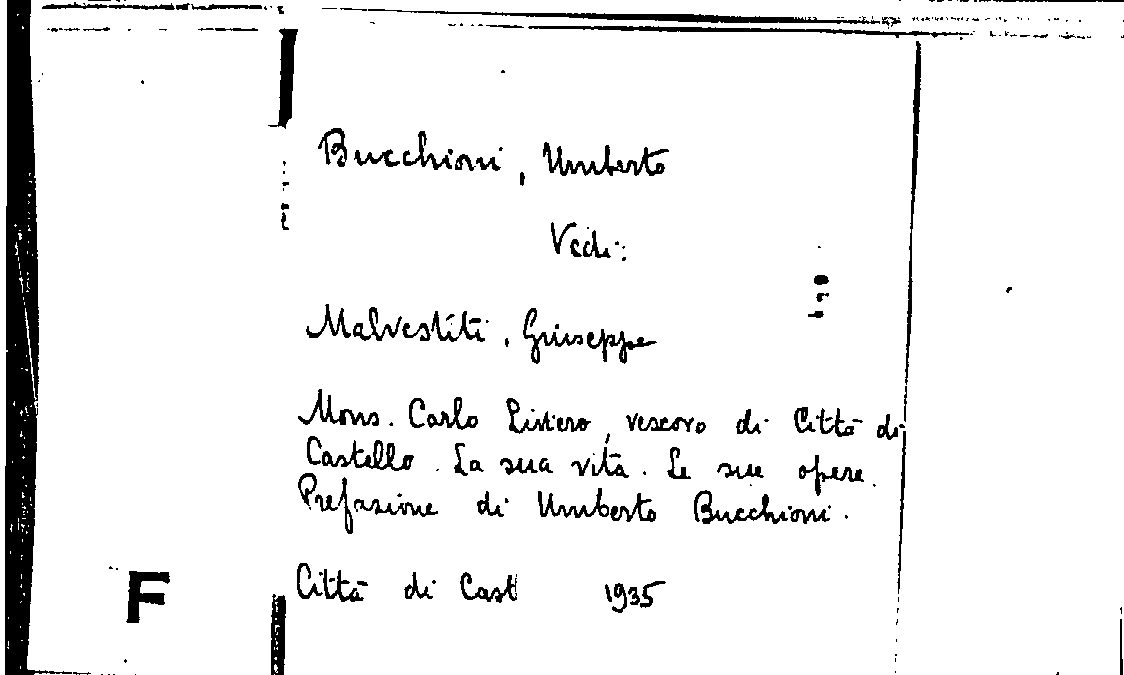 Bucchioni, Umberto
Vedi:
Malvestiti, Giuseppe
Mons. Carlo Liviero, vescovo di Città di
Castello. La sua vita. Le sue opere.
Prefazione di Umberto Bucchioni.
F
Città di Cast 1935